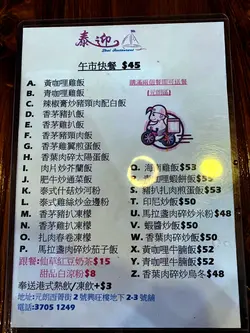 泰迎
Thai Restaurant
午市快餐 $45
購滿兩個餐即可送餐
A. 黃咖喱雞飯
B. 青咖喱雞飯
C. 辣椒膏炒豬頸肉配白飯
D. 香茅豬扒飯
E. 香茅雞扒飯
F. 香茅豬頸肉飯
G. 香茅雞翼煎蛋飯
H. 香葉肉碎太陽蛋飯
I. 肉片炒芥蘭飯
J. 肥牛炒通菜飯
K. 泰式什菇炒河粉
L. 泰式雞絲炒金邊粉
M. 香茅豬扒凍檬
N. 香茅雞扒凍檬
O. 扎肉春卷凍檬
P. 馬拉盞肉碎炒茄子飯
Q. 海南雞飯$53
R. 咖喱蝦餅飯$52
S. 豬扒扎肉煎蛋飯$53
T. 印尼炒飯$50
U. 馬拉盞肉碎炒米粉$48
V. 蝦醬炒飯$50
W. 香葉肉碎炒飯$50
X. 黃咖喱炒飯$50
Y. 青咖喱炒飯$50
Z. 香葉肉碎炒烏冬$50
跟餐:仙草紅豆奶茶$15
甜品白涼粉$8
奉送港式熱飲/凍飲+$3
地址:元朗西菁街 2 號興旺樓地下 2-3 號舖
電話:3705 1249